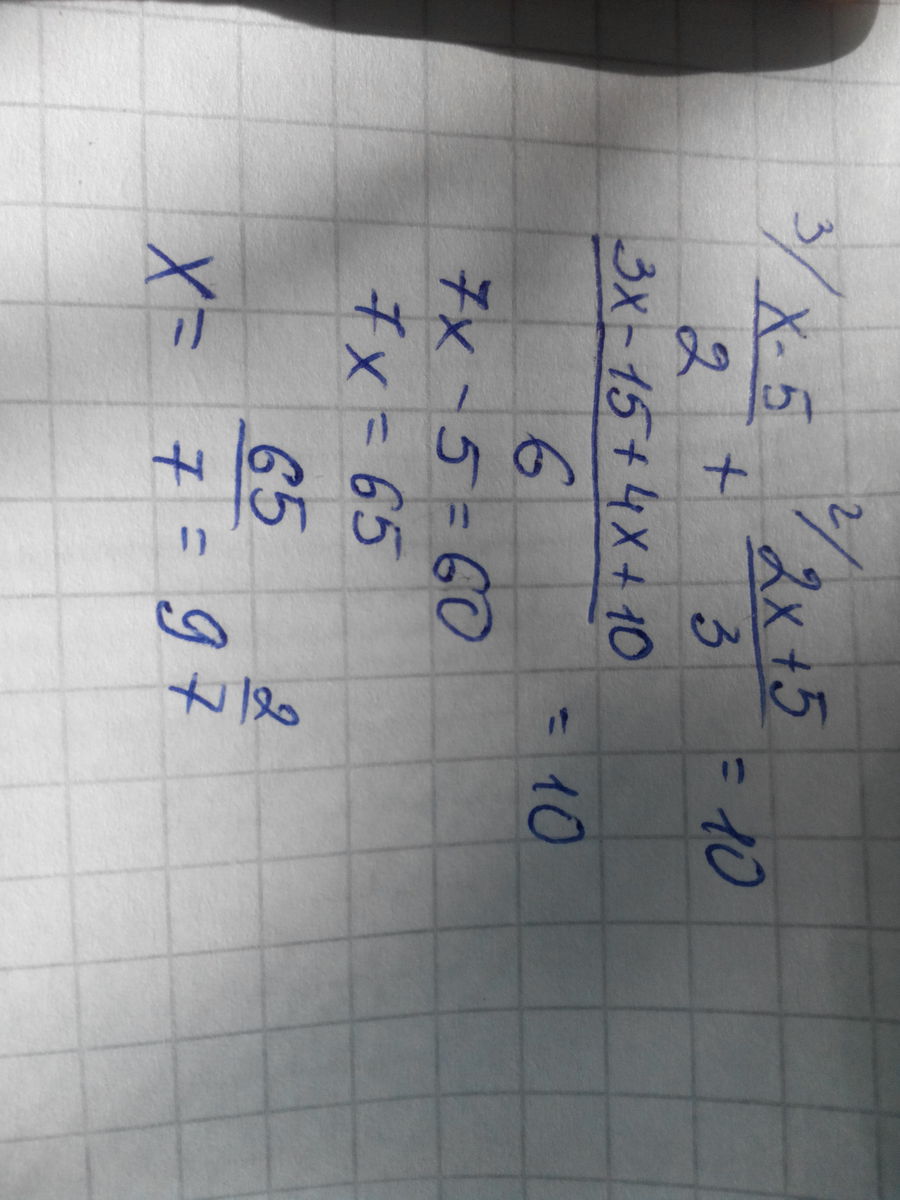 3/ x-5/2 + 2/ 2x+5/3 = 10
3x-15+4x+10/6 = 10
7x-5=60
7x=65
x= 65/7 = 9 2/7